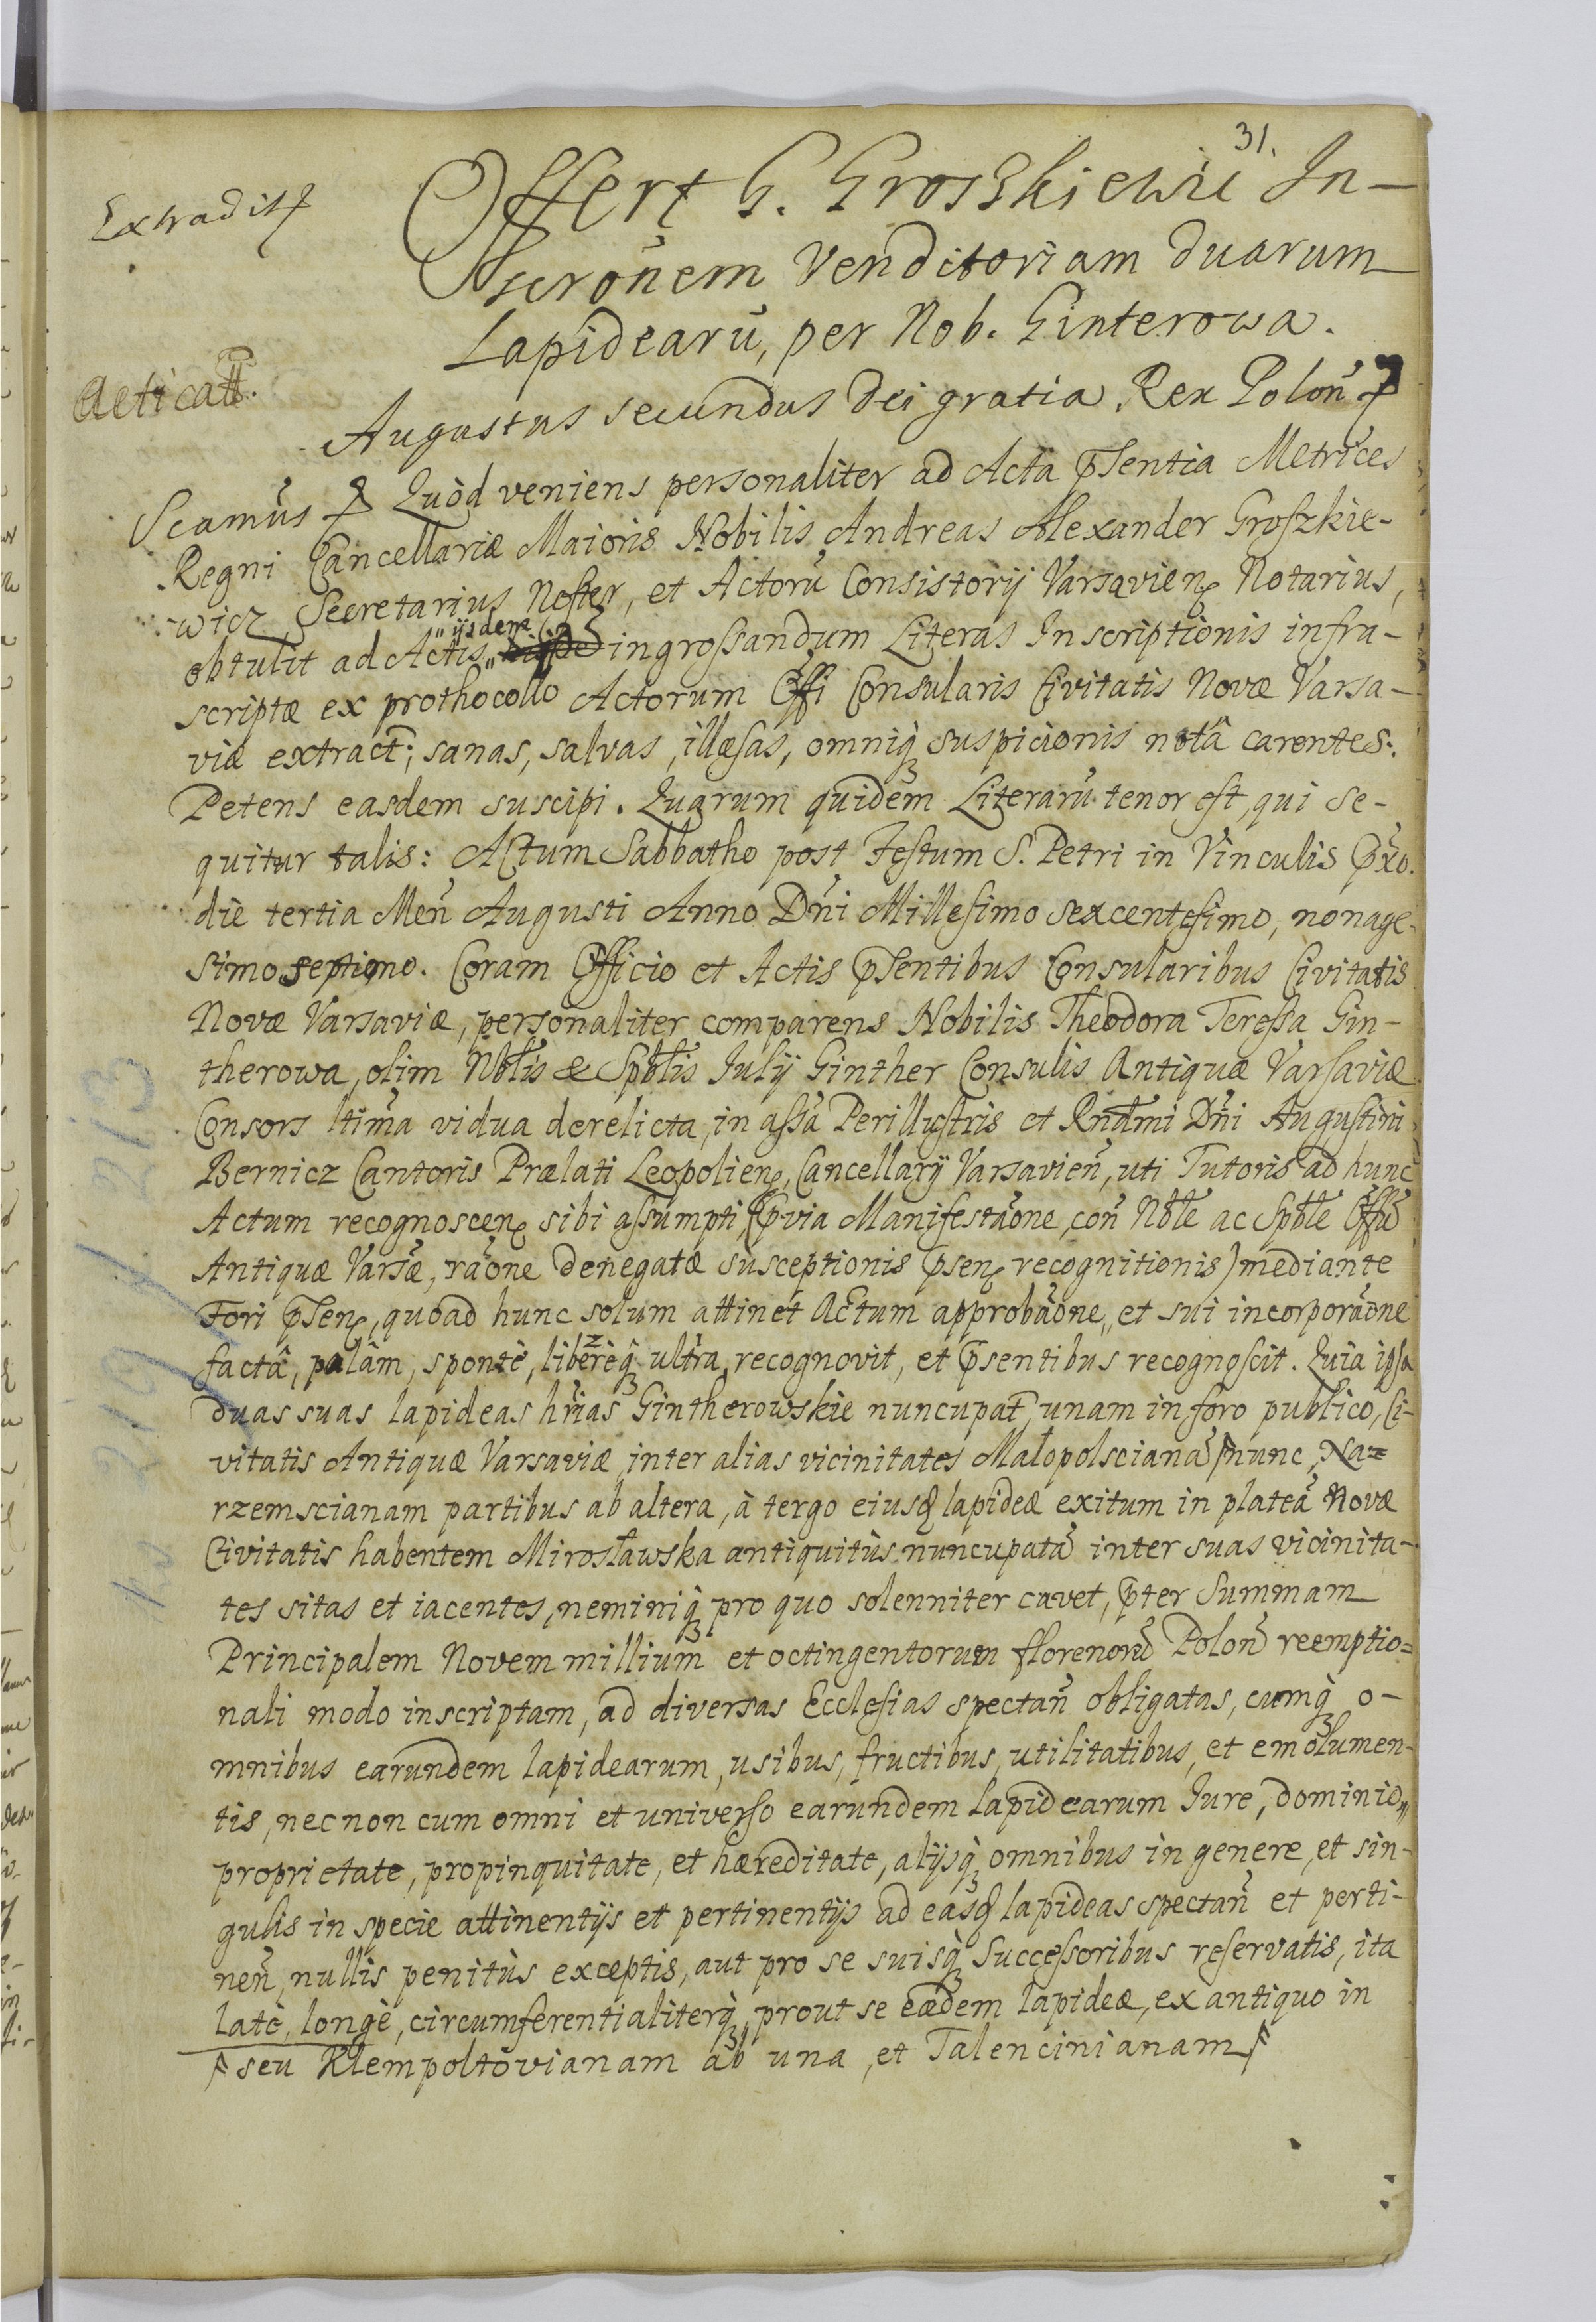 31.
Extradit
Offert G. Groszkiewic In-
scrõnem Venditoriam duarum
Lapidearũ, per Nob. Ginterowa.
Acticatt.
Augustus secundus Dei gratia Rex Poloñ
Scamus Quòd veniens personaliter ad Acta p̃sentia Metrices
Regni Cancellariæ Maioris Nobilis Andreas Alexander Groszkie-
wicz Secretarius Noster, et Actorũ Consistorij Varsavieñ Notarius,
obtulit ad Actis ijsdem ingrossandum Literas Inscriptionis infra-
scriptæ ex prothocollo Actorum Offi Consularis Civitatis Novæ Varsa-
viæ extract; sanas, salvas, illæsas, omniq; suspicionis notâ carentes.
Petens easdem suscipi. Quarum quidem Literarũ tenor est, qui se-
quitur talis: Actum Sabbatho post Festum S. Petri in Vinculis p̃xo.
die tertia Meñ Augusti Anno Dñi Millesimo sexcentesimo, nonage-
simo septimo. Coram Officio et Actis p̃sentibus Consularibus Civitatis
Novæ Varsaviæ, personaliter comparens Nobilis Theodora Teressa Gin-
therowa, olim Nblis & Spblis Iulij Ginther Consulis Antiquæ Varsaviæ
Consors ltima vidua derelicta, in assã Perillustris et Rndmi Dñi Augustini
Bernicz Cantoris Prælati Leopolieñ, Cancellarij Varsavieñ, uti Tutoris ad hunc
Actum recognosceñ sibi assumpti, (p̃via Manifestãone, coñ Nble ac Spble Offũ
Antiquæ Varsæ, rãone denegatæ susceptionis p̃señ recognitionis) mediante
Fori p̃señ, quoad hunc solum attinet Actum approbãone, et sui incorporãone
factâ, palâm, spontè, liberèq; ultra recognovit, et p̃sentibus recognoscit. Quia ipsa
duas suas lapideas hrias Gintherowskie nuncupat, unam in foro publico, Ci-
vitatis Antiquæ Varsaviæ inter alias vicinitates Małopolscianã nunc Na=
rzemscianam partibus ab altera, à tergo eiusd lapideæ exitum in plateã Novæ
Civitatis habentem Mirosławska antiquitùs nuncupatã inter suas vicinita-
tes sitas et iacentes, neminiq; pro quo solenniter cavet, p̃ter Summam
Principalem Novem millium et octingentorum florenorũ Poloñ reemptio=
nali modo inscriptam, ad diversas Ecclesias spectañ obligatas, cumq; o-
mnibus earundem lapidearum, usibus, fructibus, utilitatibus, et emolumen-
tis, nec non cum omni et universo earundem lapidearum Iure, dominio,
proprietate, propinquitate, et hæreditate, alijsq; omnibus in genere, et sin-
gulis in specie attinentijs et pertinentijs ad easd lapideas spectañ et perti-
neñ, nullis penitùs exceptis, aut pro se suisq; Successoribus reservatis, ita
latè, longè, circumferentialiterq; prout se eædem lapideæ, ex antiquo in
seu Klempoltovianam ab una, et Talencinianam